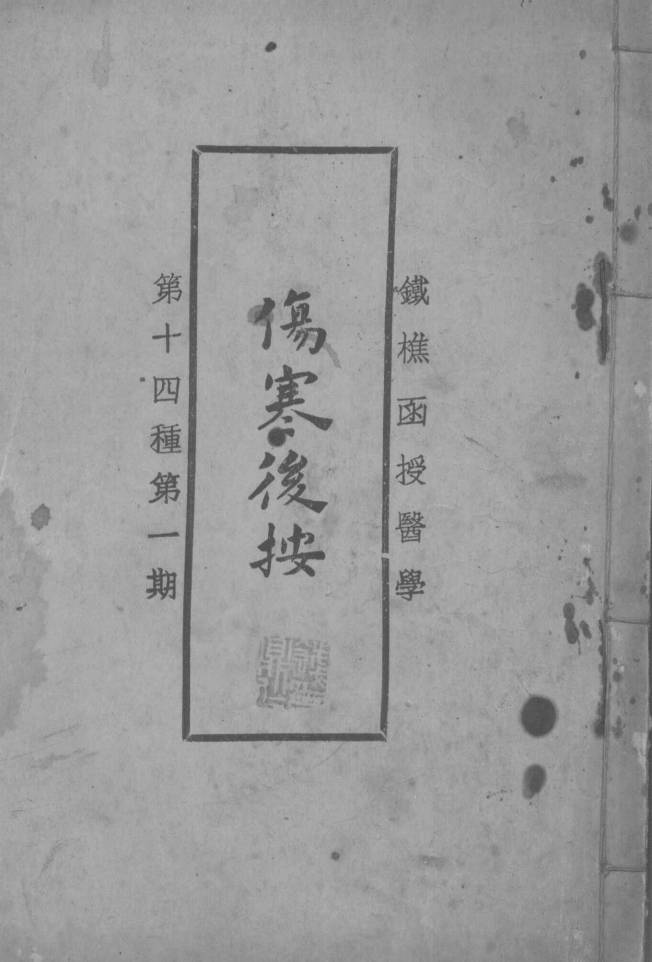 鐵樵函授醫學
傷寒後按
第十四種第一期